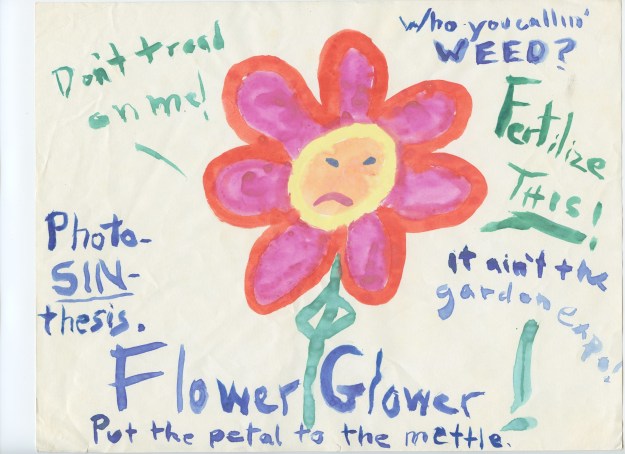 Don't tread
on me!
Who you callin'
WEED?
Fertilize
THIS!
Photo-
SIN-
thesis.
It ain't the
garden expo!
Flower Glower!
Put the petal to the mettle.